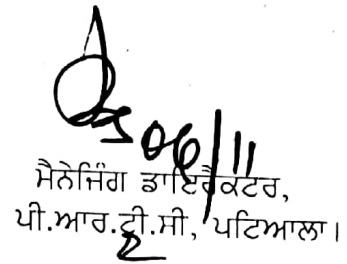 06/11
ਮੈਨੇਜਿੰਗ ਡਾਇਰੈਕਟਰ,
ਪੀ.ਆਰ.ਟੀ.ਸੀ, ਪਟਿਆਲਾ।